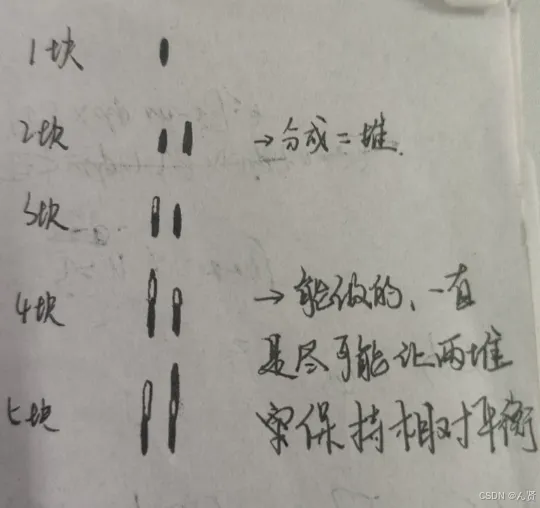 1块
2块 →分成二堆.
3块
4块 →能做的、一直
是尽可能让两堆
5块
保持相对平衡
CSDN @ん贤